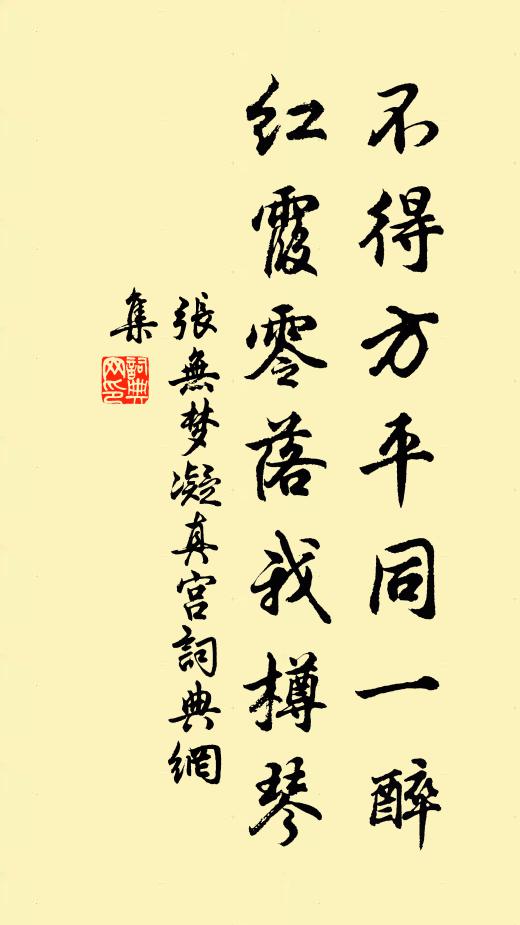 不得方平同一醉
紅霞零落我樽琴
張無梦凝真宫詞典網
集
詞典网印